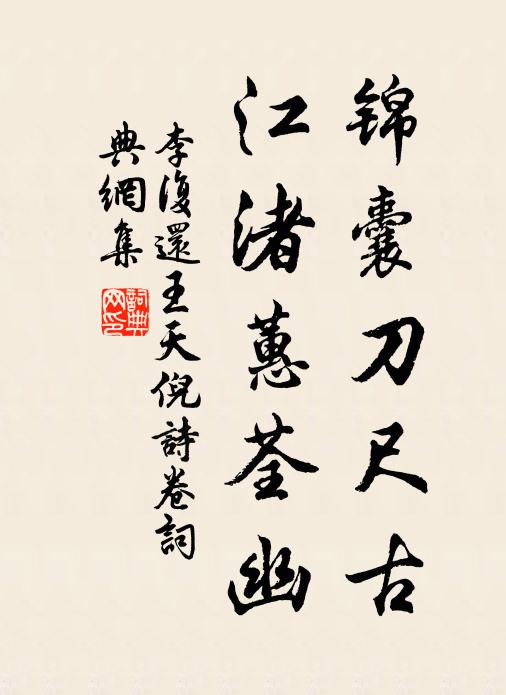 锦囊刀尺古
江渚蕙荃幽
李復還王天倪詩卷詞
典網集
詞典
网印